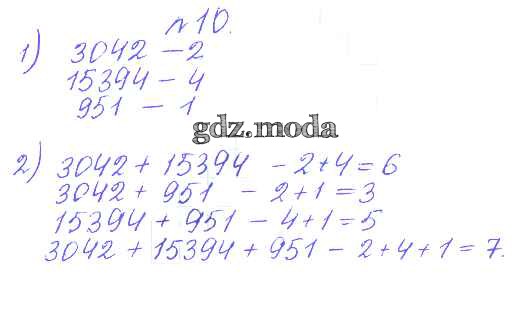 №10.
1) 3042 – 2
15394 – 4
951 – 1
gdz.moda
2) 3042 + 15394 – 2 + 4 = 6
3042 + 951 – 2 + 1 = 3
15394 + 951 – 4 + 1 = 5
3042 + 15394 + 951 – 2 + 4 + 1 = 7.